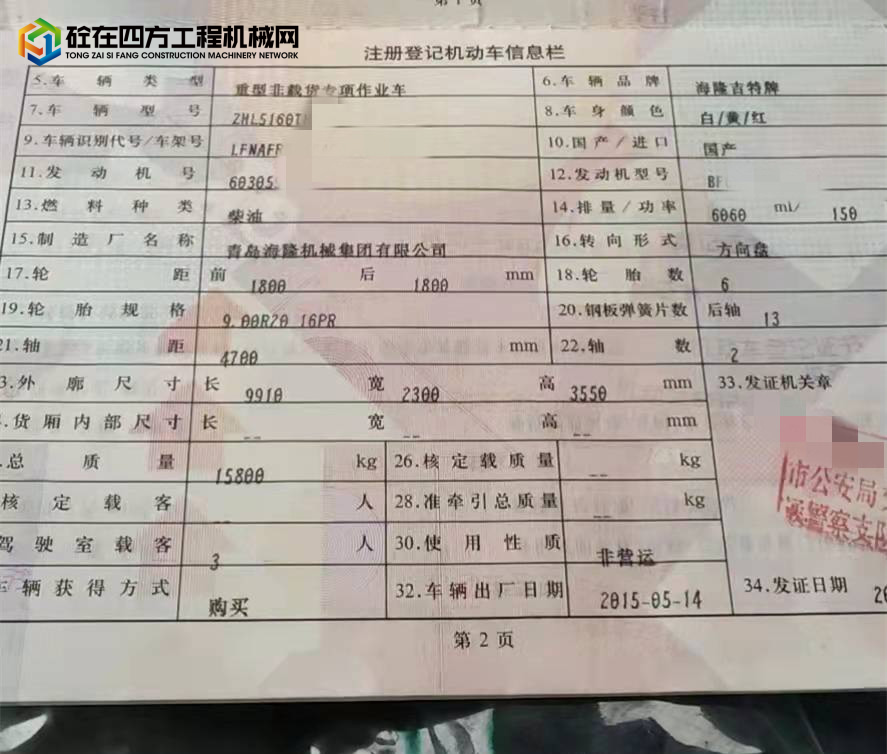 第1页
砼在四方工程机械网
TONG ZAI SI FANG CONSTRUCTION MACHINERY NETWORK
注册登记机动车信息栏
5.车辆类型 重型非载货专项作业车 6.车辆品牌 海隆吉特牌
7.车辆型号 ZHL5160T 8.车身颜色 白/黄/红
9.车辆识别代号/车架号 LFNAFR 10.国产/进口 国产
11.发动机号 60305 12.发动机型号 BF
13.燃料种类 柴油 14.排量/功率 6060 ml/ 150
15.制造厂名称 青岛海隆机械集团有限公司 16.转向形式 方向盘
17.轮距 前 1800 后 1800 mm 18.轮胎数 6
19.轮胎规格 9.00R20 16PR 20.钢板弹簧片数 后轴 13
21.轴距 4700 mm 22.轴数 2
3.外廓尺寸 长 9910 宽 2300 高 3550 mm 33.发证机关章
.货厢内部尺寸 长 -- 宽 -- 高 -- mm
.总质量 15800 kg 26.核定载质量 -- kg
核定载客 -- 人 28.准牵引总质量 -- kg
市公安局
警察支队
驾驶室载客 3 人 30.使用性质 非营运
车辆获得方式 购买 32.车辆出厂日期 2015-05-14 34.发证日期 20
第2页